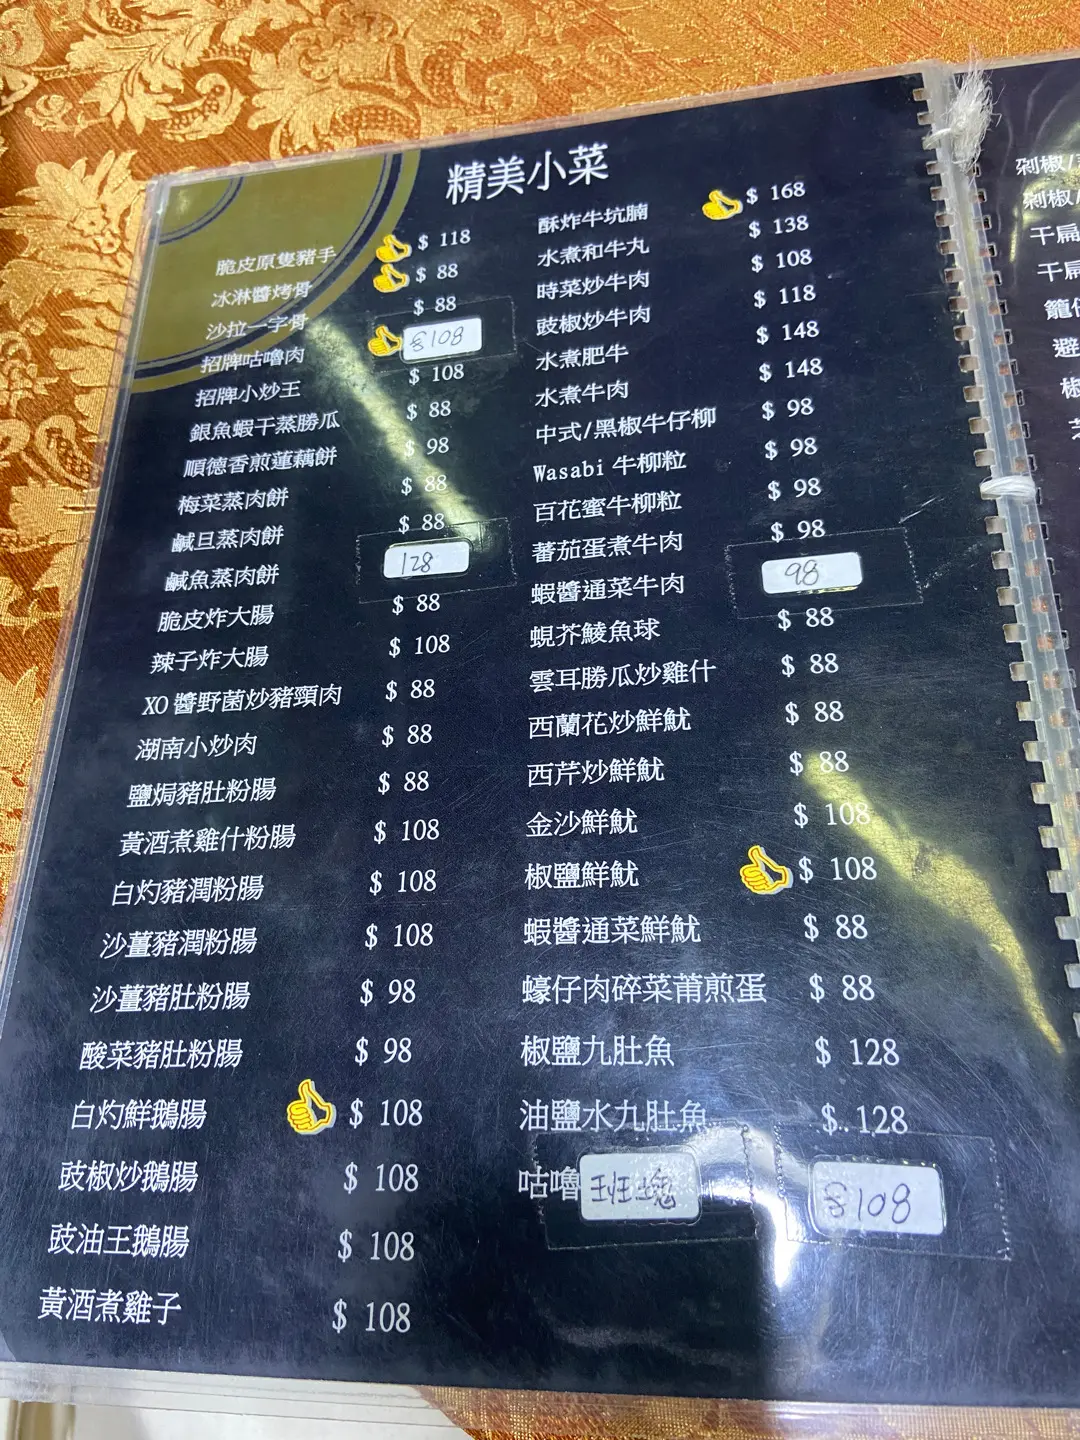 精美小菜
脆皮原隻豬手 $ 118
冰淋醬烤骨 $ 88
沙拉一字骨 $ 88
招牌咕嚕肉 $108
招牌小炒王 $ 108
銀魚蝦干蒸勝瓜 $ 88
順德香煎蓮藕餅 $ 98
梅菜蒸肉餅 $ 88
鹹旦蒸肉餅 $ 88
鹹魚蒸肉餅 128
脆皮炸大腸 $ 88
辣子炸大腸 $ 108
XO 醬野菌炒豬頸肉 $ 88
湖南小炒肉 $ 88
鹽焗豬肚粉腸 $ 88
黃酒煮雞什粉腸 $ 108
白灼豬潤粉腸 $ 108
沙薑豬潤粉腸 $ 108
沙薑豬肚粉腸 $ 98
酸菜豬肚粉腸 $ 98
白灼鮮鵝腸 $ 108
豉椒炒鵝腸 $ 108
豉油王鵝腸 $ 108
黃酒煮雞子 $ 108
酥炸牛坑腩 $ 168
水煮和牛丸 $ 138
時菜炒牛肉 $ 108
豉椒炒牛肉 $ 118
水煮肥牛 $ 148
水煮牛肉 $ 148
中式/黑椒牛仔柳 $ 98
Wasabi 牛柳粒 $ 98
百花蜜牛柳粒 $ 98
蕃茄蛋煮牛肉 $ 98
蝦醬通菜牛肉 98
蜆芥鯪魚球 $ 88
雲耳勝瓜炒雞什 $ 88
西蘭花炒鮮魷 $ 88
西芹炒鮮魷 $ 88
金沙鮮魷 $ 108
椒鹽鮮魷 $ 108
蝦醬通菜鮮魷 $ 88
蠔仔肉碎菜莆煎蛋 $ 88
椒鹽九肚魚 $ 128
油鹽水九肚魚 $ 128
咕嚕班塊 $108
剁椒/
剁椒/
干扁
干扁
避
椒